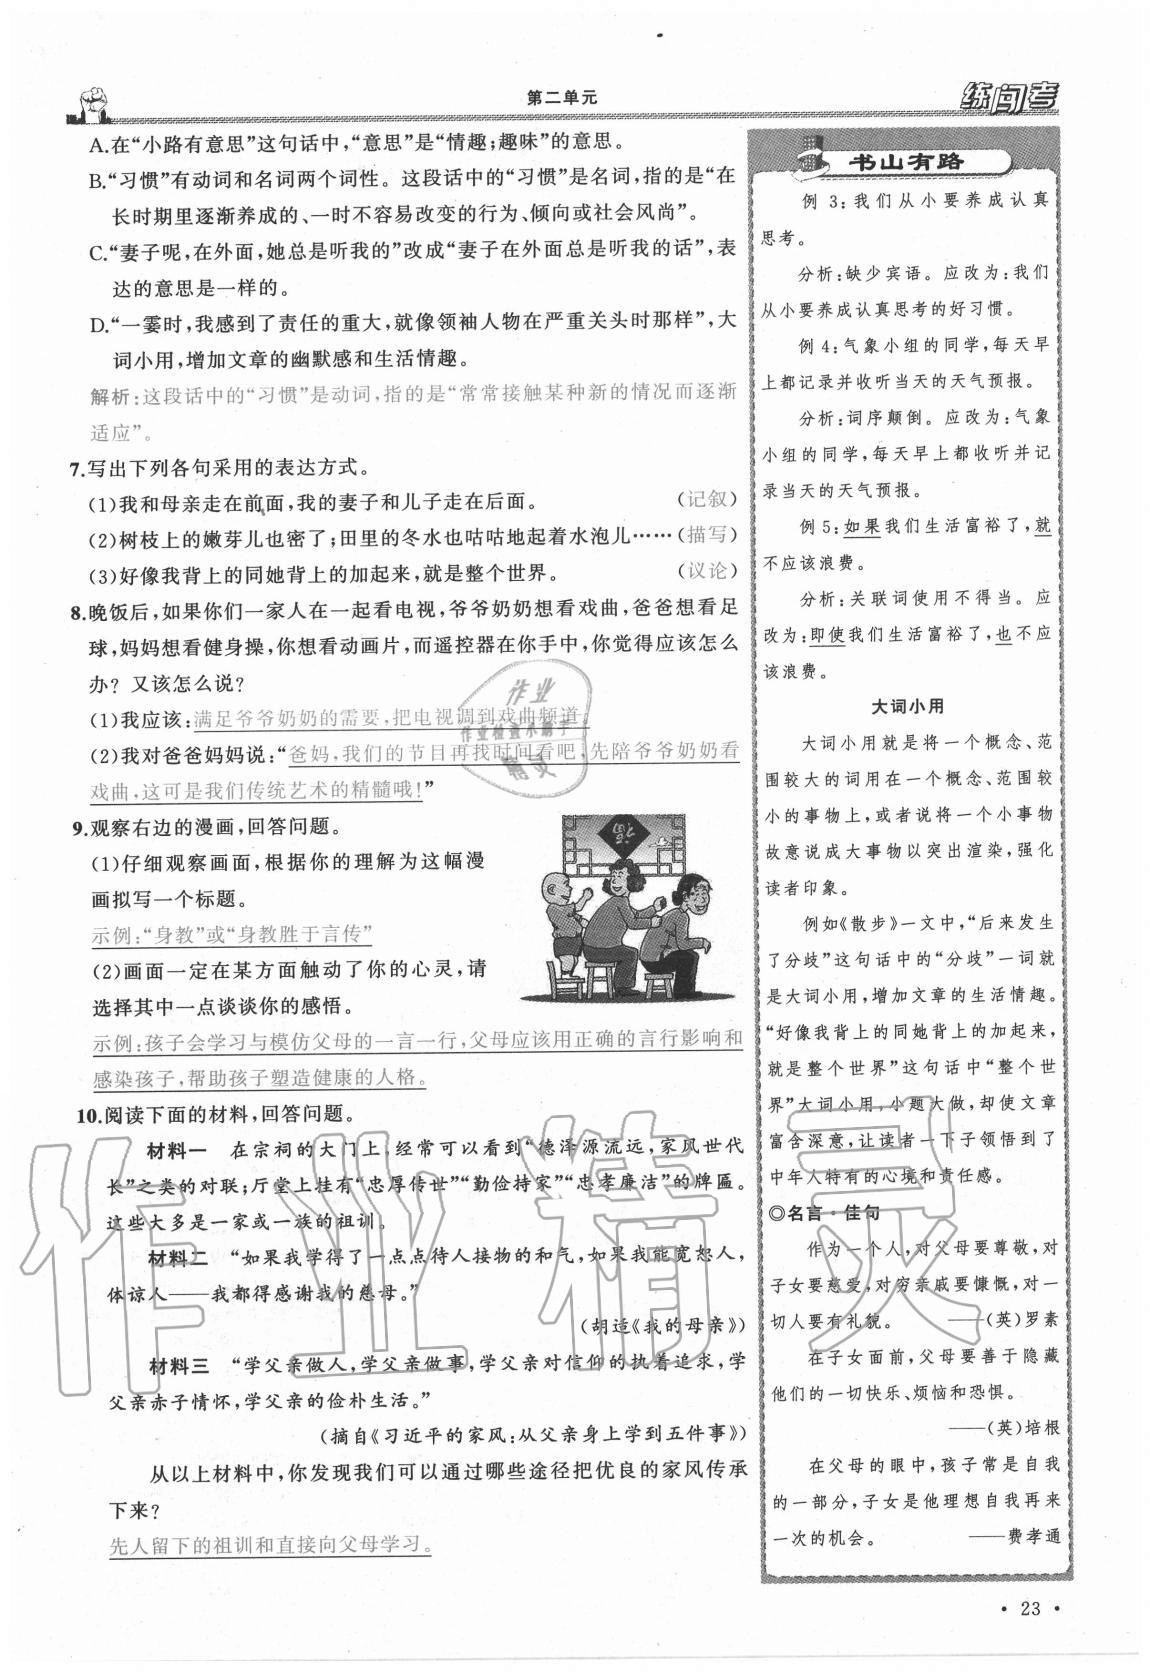 第二单元
练闯考
A.在“小路有意思”这句话中，“意思”是“情趣；趣味”的意思。
B.“习惯”有动词和名词两个词性。这段话中的“习惯”是名词，指的是“在
长时期里逐渐养成的、一时不容易改变的行为、倾向或社会风尚”。
C.“妻子呢，在外面，她总是听我的”改成“妻子在外面总是听我的话”，表
达的意思是一样的。
D.“一霎时，我感到了责任的重大，就像领袖人物在严重关头时那样”，大
词小用，增加文章的幽默感和生活情趣。
解析：这段话中的“习惯”是动词，指的是“常常接触某种新的情况而逐渐
适应”。
7.写出下列各句采用的表达方式。
(1)我和母亲走在前面，我的妻子和儿子走在后面。 (记叙)
(2)树枝上的嫩芽儿也密了；田里的冬水也咕咕地起着水泡儿…… (描写)
(3)好像我背上的同她背上的加起来，就是整个世界。 (议论)
8.晚饭后，如果你们一家人在一起看电视，爷爷奶奶想看戏曲，爸爸想看足
球，妈妈想看健身操，你想看动画片，而遥控器在你手中，你觉得应该怎么
办？又该怎么说？
(1)我应该：满足爷爷奶奶的需要，把电视调到戏曲频道。
(2)我对爸爸妈妈说：“爸妈，我们的节目再找时间看吧，先陪爷爷奶奶看
戏曲，这可是我们传统艺术的精髓哦！”
9.观察右边的漫画，回答问题。
(1)仔细观察画面，根据你的理解为这幅漫
画拟写一个标题。
示例：“身教”或“身教胜于言传”
(2)画面一定在某方面触动了你的心灵，请
选择其中一点谈谈你的感悟。
福
示例：孩子会学习与模仿父母的一言一行，父母应该用正确的言行影响和
感染孩子，帮助孩子塑造健康的人格。
10.阅读下面的材料，回答问题。
材料一 在宗祠的大门上，经常可以看到“德泽源流远，家风世代
长”之类的对联；厅堂上挂有“忠厚传世”“勤俭持家”“忠孝廉洁”的牌匾。
这些大多是一家或一族的祖训。
材料二 “如果我学得了一点点待人接物的和气，如果我能宽恕人，
体谅人——我都得感谢我的慈母。”
(胡适《我的母亲》)
材料三 “学父亲做人，学父亲做事，学父亲对信仰的执着追求，学
父亲赤子情怀，学父亲的俭朴生活。”
(摘自《习近平的家风：从父亲身上学到五件事》)
从以上材料中，你发现我们可以通过哪些途径把优良的家风传承
下来？
先人留下的祖训和直接向父母学习。
书山有路
例 3：我们从小要养成认真
思考。
分析：缺少宾语。应改为：我们
从小要养成认真思考的好习惯。
例 4：气象小组的同学，每天早
上都记录并收听当天的天气预报。
分析：词序颠倒。应改为：气象
小组的同学，每天早上都收听并记
录当天的天气预报。
例 5：如果我们生活富裕了，就
不应该浪费。
分析：关联词使用不得当。应
改为：即使我们生活富裕了，也不应
该浪费。
大词小用
大词小用就是将一个概念、范
围较大的词用在一个概念、范围较
小的事物上，或者说将一个小事物
故意说成大事物以突出渲染，强化
读者印象。
例如《散步》一文中，“后来发生
了分歧”这句话中的“分歧”一词就
是大词小用，增加文章的生活情趣。
“好像我背上的同她背上的加起来，
就是整个世界”这句话中“整个世
界”大词小用，小题大做，却使文章
富含深意，让读者一下子领悟到了
中年人特有的心境和责任感。
◎名言·佳句
作为一个人，对父母要尊敬，对
子女要慈爱，对穷亲戚要慷慨，对一
切人要有礼貌。 ——(英)罗素
在子女面前，父母要善于隐藏
他们的一切快乐、烦恼和恐惧。
——(英)培根
在父母的眼中，孩子常是自我
的一部分，子女是他理想自我再来
一次的机会。 ——费孝通
· 23 ·
作业
作业检查小助手
精灵
作业精灵